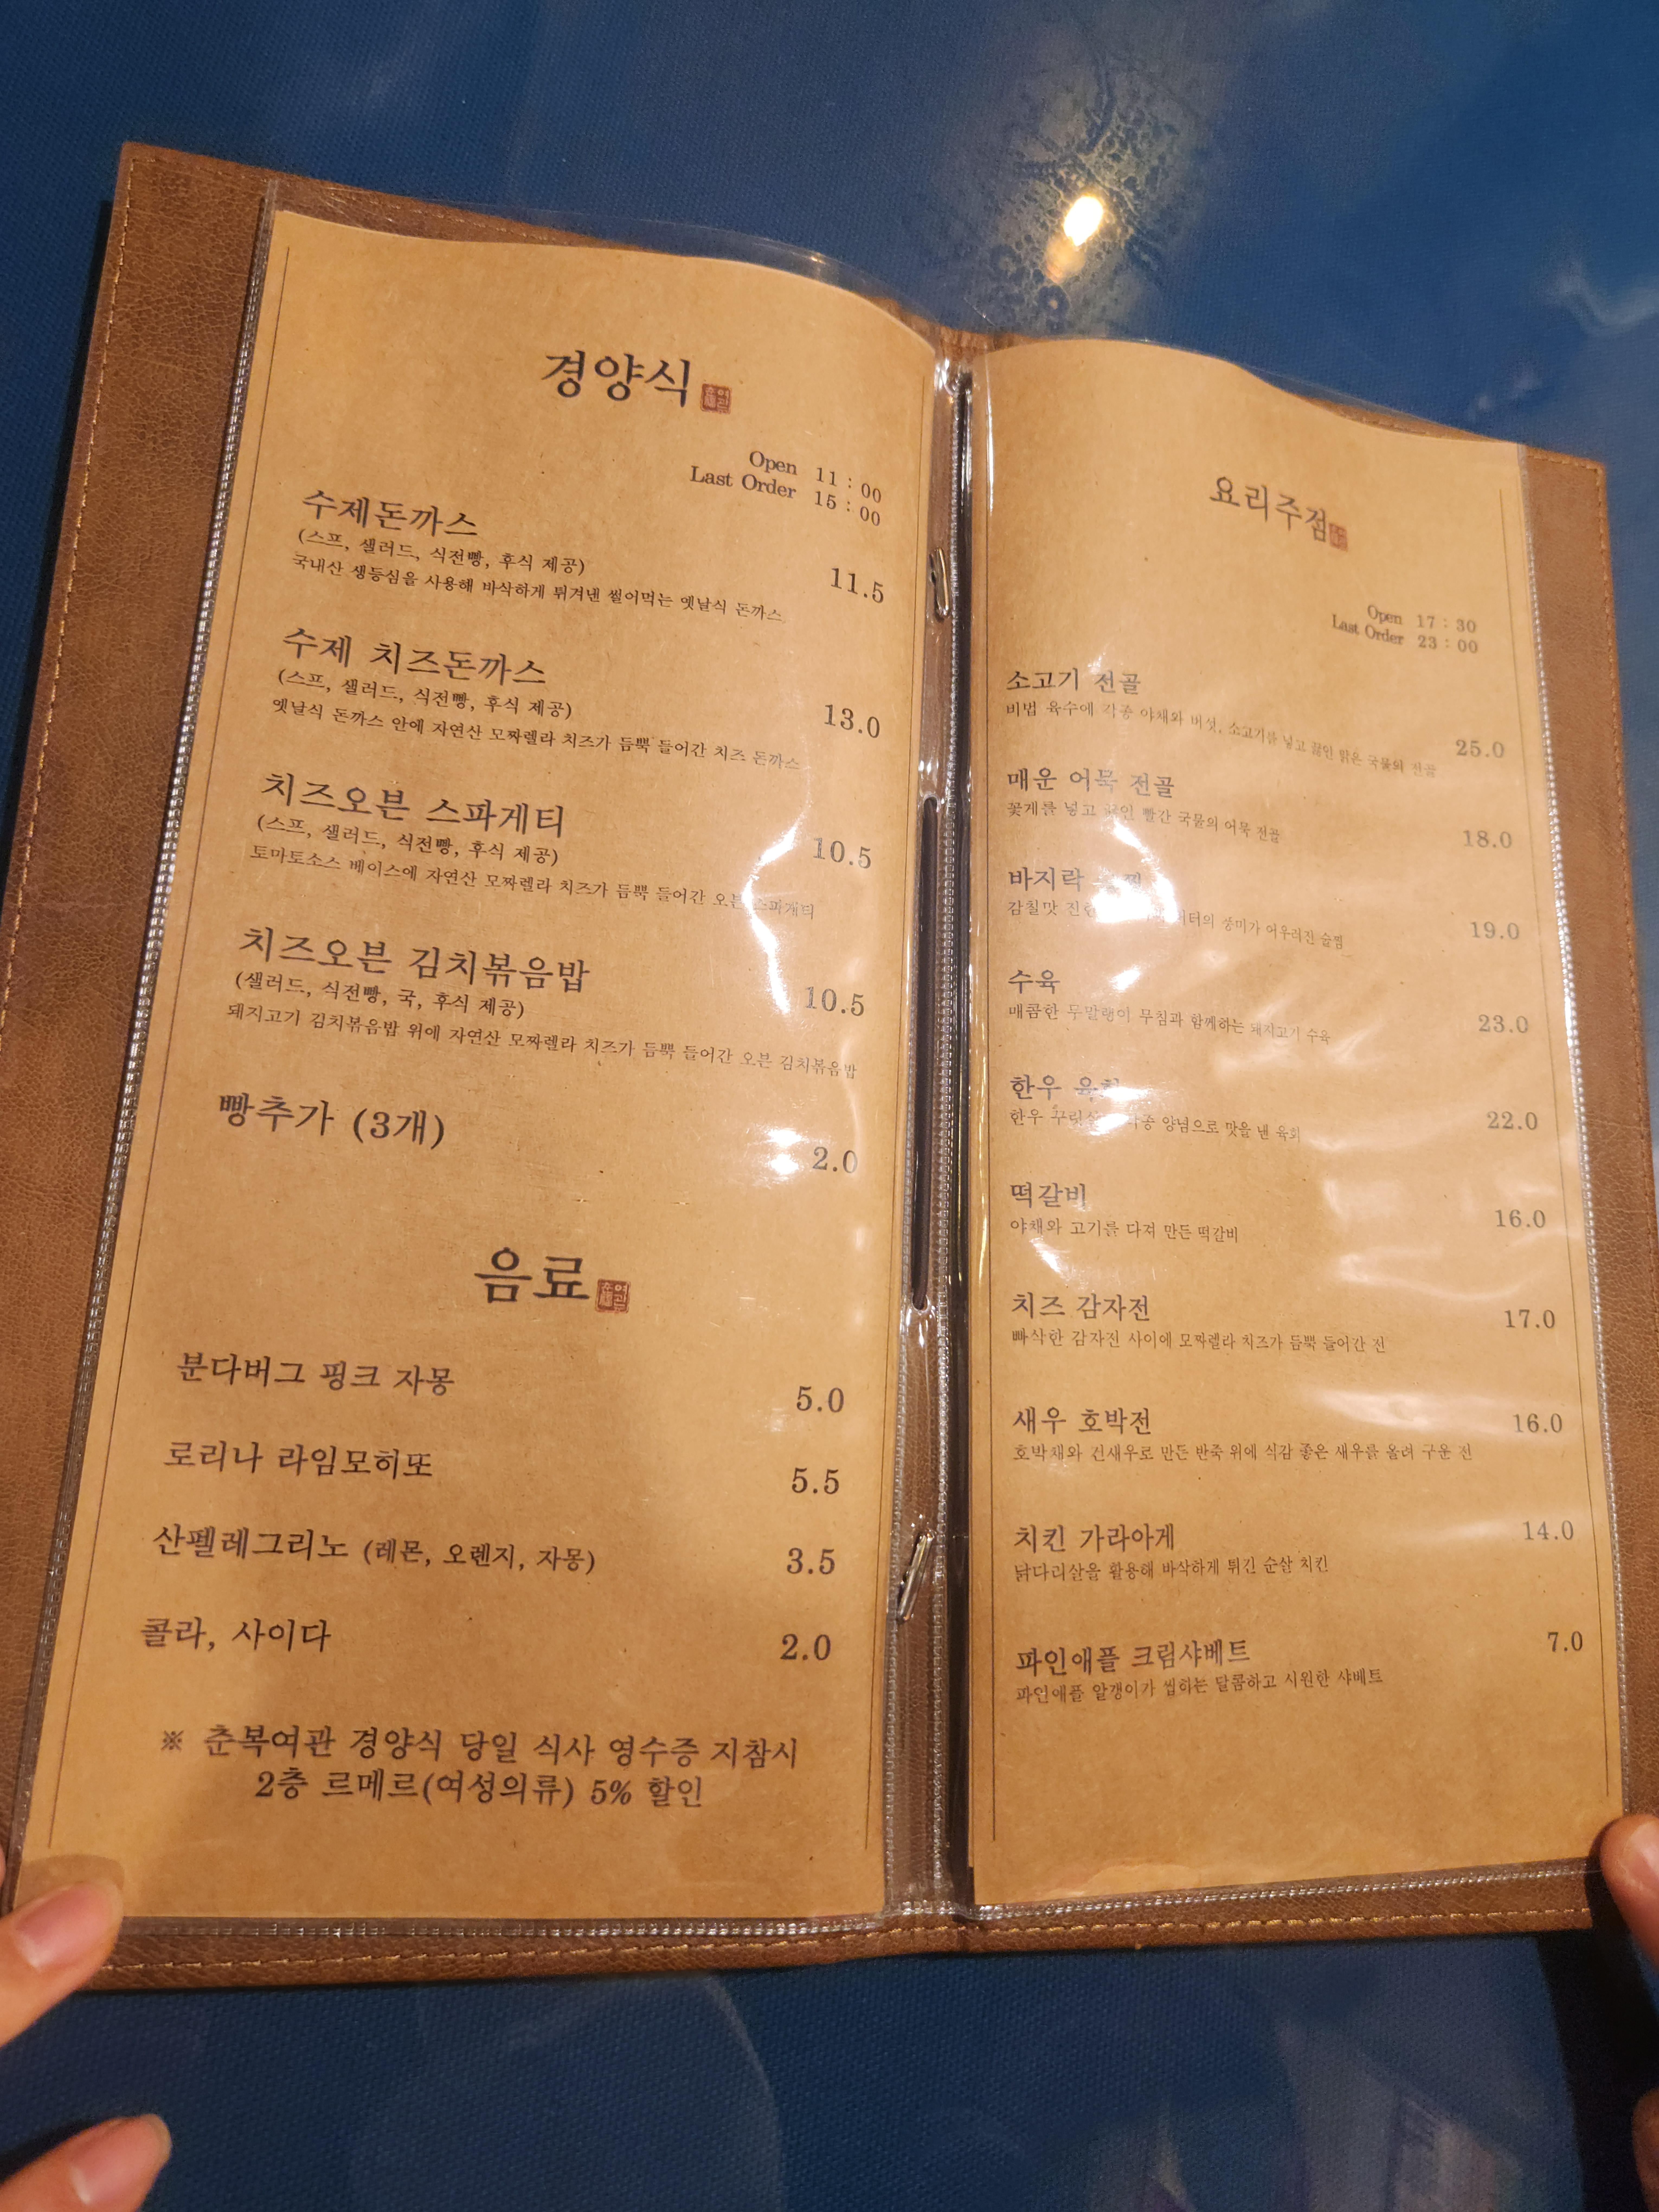 경양식
Open 11 : 00
Last Order 15 : 00
수제돈까스
(스프, 샐러드, 식전빵, 후식 제공)
국내산 생등심을 사용해 바삭하게 튀겨낸 썰어먹는 옛날식 돈까스
11.5
수제 치즈돈까스
(스프, 샐러드, 식전빵, 후식 제공)
옛날식 돈까스 안에 자연산 모짜렐라 치즈가 듬뿍 들어간 치즈 돈까스
13.0
치즈오븐 스파게티
(스프, 샐러드, 식전빵, 후식 제공)
토마토소스 베이스에 자연산 모짜렐라 치즈가 듬뿍 들어간 오븐 스파게티
10.5
치즈오븐 김치볶음밥
(샐러드, 식전빵, 국, 후식 제공)
돼지고기 김치볶음밥 위에 자연산 모짜렐라 치즈가 듬뿍 들어간 오븐 김치볶음밥
10.5
빵추가 (3개)
2.0
음료
분다버그 핑크 자몽
5.0
로리나 라임모히또
5.5
산펠레그리노 (레몬, 오렌지, 자몽)
3.5
콜라, 사이다
2.0
※ 춘복여관 경양식 당일 식사 영수증 지참시
2층 르메르(여성의류) 5% 할인
요리주점
Open 17 : 30
Last Order 23 : 00
소고기 전골
비법 육수에 각종 야채와 버섯, 소고기를 넣고 끓인 맑은 국물의 전골
25.0
매운 어묵 전골
꽃게를 넣고 끓인 빨간 국물의 어묵 전골
18.0
바지락
감칠맛 풍미가 어우러진 술찜
19.0
수육
매콤한 무말랭이 무침과 함께하는 돼지고기 수육
23.0
한우
한우 양념으로 맛을 낸 육회
22.0
떡갈비
야채와 고기를 다져 만든 떡갈비
16.0
치즈 감자전
빠삭한 감자전 사이에 모짜렐라 치즈가 듬뿍 들어간 전
17.0
새우 호박전
호박채와 건새우로 만든 반죽 위에 식감 좋은 새우를 올려 구운 전
16.0
치킨 가라아게
닭다리살을 활용해 바삭하게 튀긴 순살 치킨
14.0
파인애플 크림샤베트
파인애플 알갱이가 씹히는 달콤하고 시원한 샤베트
7.0